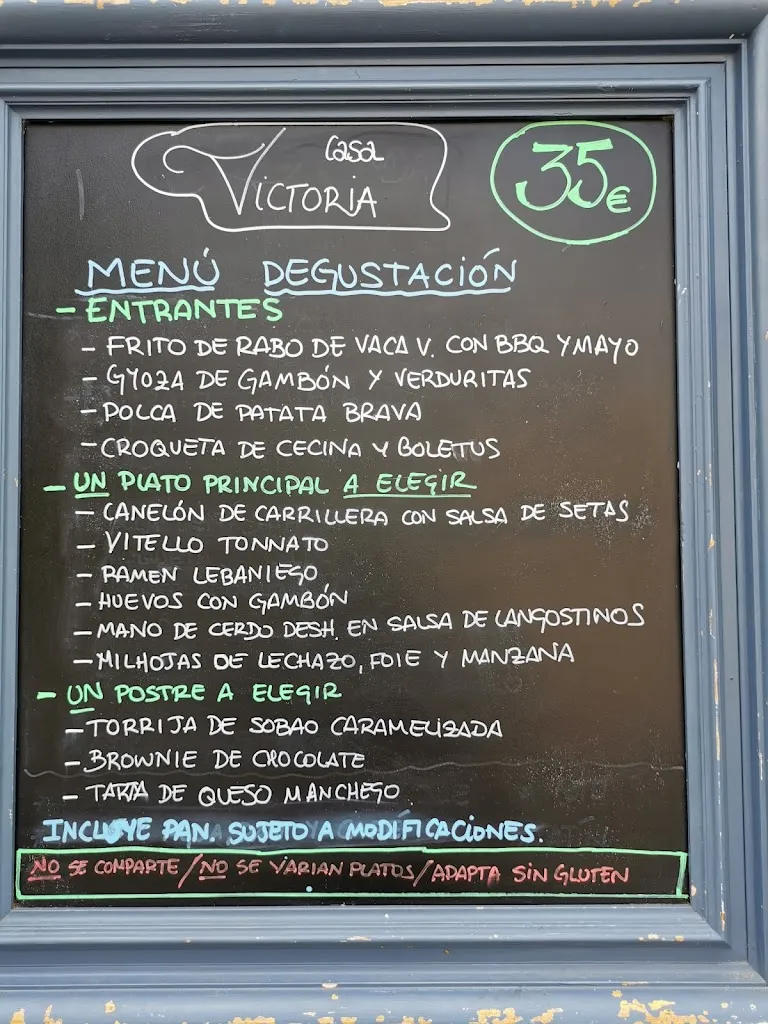 Casa
VICTORIA
35€
MENÚ DEGUSTACIÓN
- ENTRANTES
- FRITO DE RABO DE VACA V. CON BBQ Y MAYO
- GYOZA DE GAMBÓN Y VERDURITAS
- POLCA DE PATATA BRAVA
- CROQUETA DE CECINA Y BOLETUS
- UN PLATO PRINCIPAL A ELEGIR
- CANELÓN DE CARRILLERA CON SALSA DE SETAS
- VITELLO TONNATO
- RAMEN LEBANIEGO
- HUEVOS CON GAMBÓN
- MANO DE CERDO DESH. EN SALSA DE LANGOSTINOS
- MILHOJAS DE LECHAZO, FOIE Y MANZANA
- UN POSTRE A ELEGIR
- TORRIJA DE SOBAO CARAMELIZADA
- BROWNIE DE CHOCOLATE
- TARTA DE QUESO MANCHEGO
INCLUYE PAN. SUJETO A MODIFICACIONES.
NO SE COMPARTE / NO SE VARIAN PLATOS / ADAPTA SIN GLUTEN